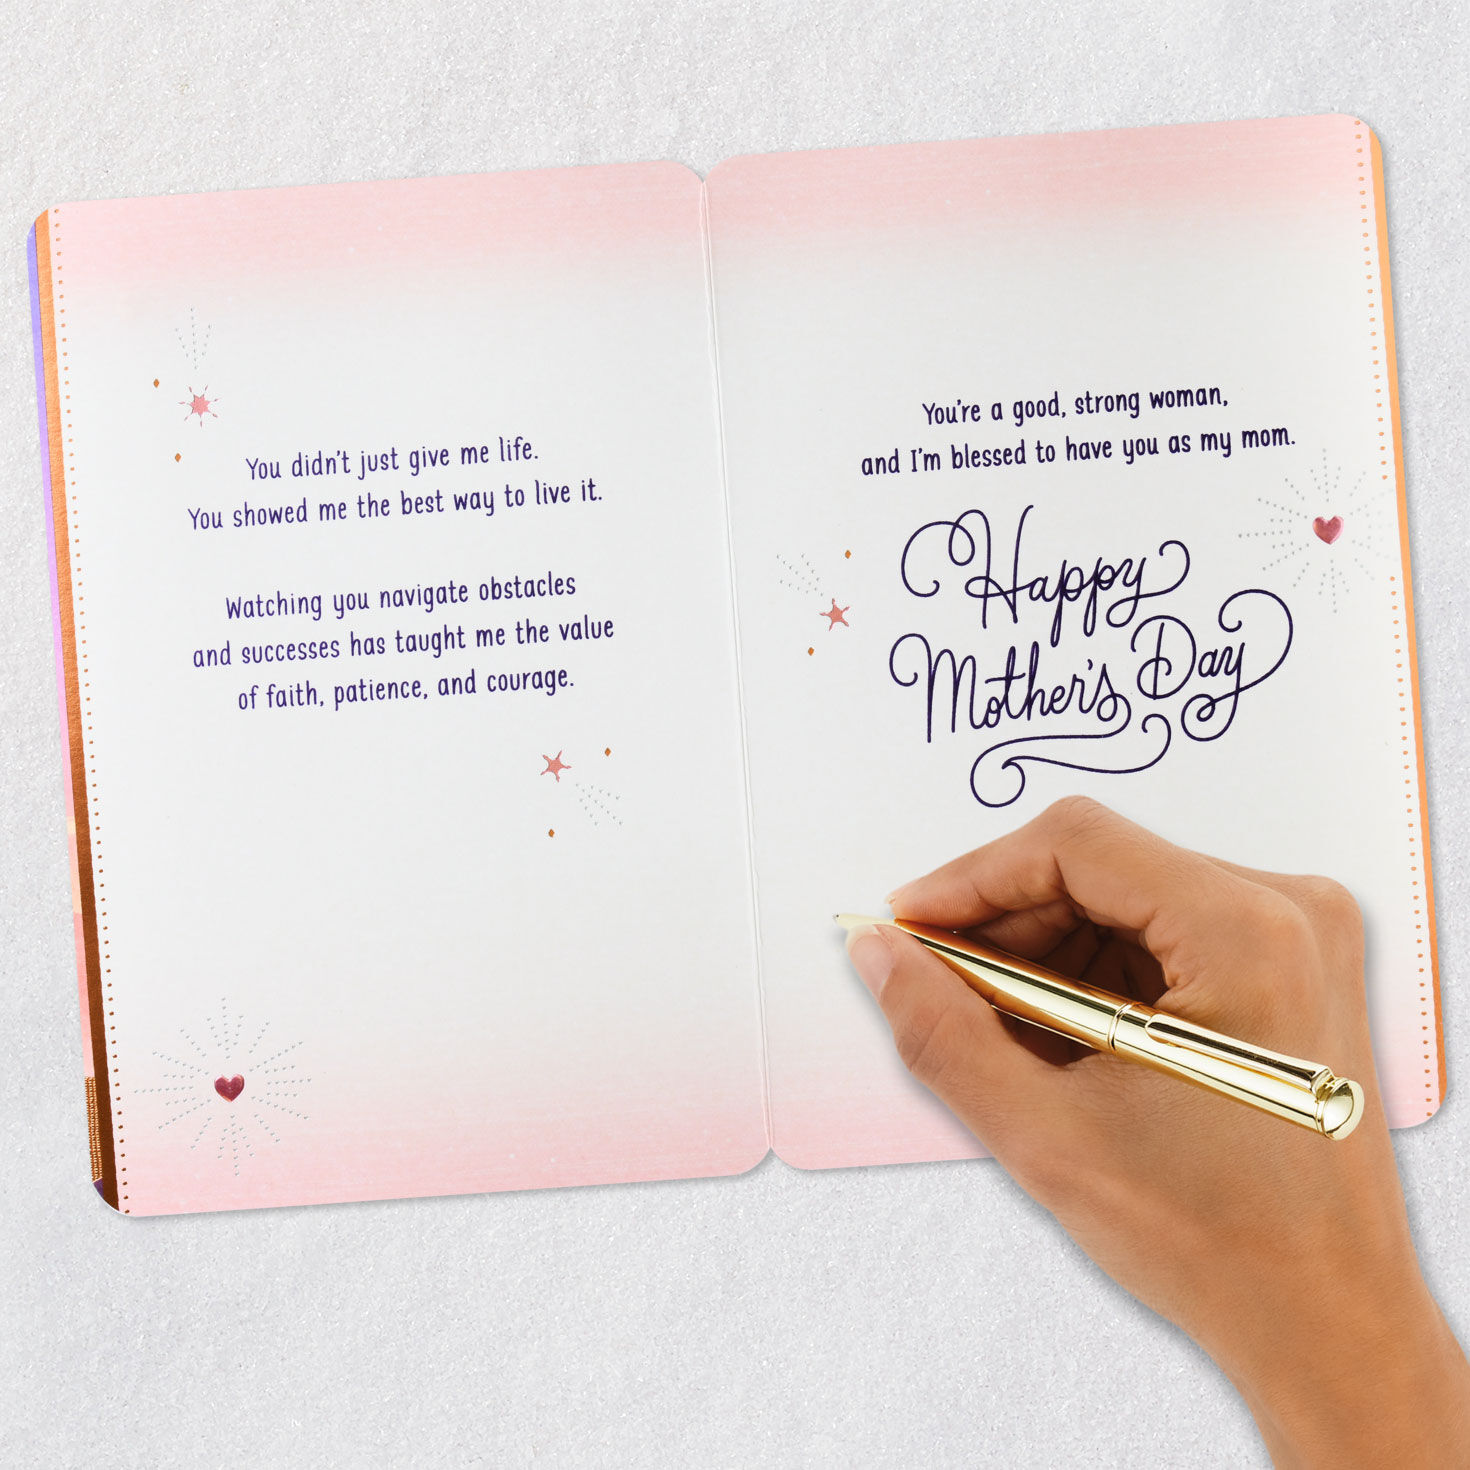 You didn't just give me life.
You showed me the best way to live it.
Watching you navigate obstacles
and successes has taught me the value
of faith, patience, and courage.
You're a good, strong woman,
and I'm blessed to have you as my mom.
Happy
Mother's Day